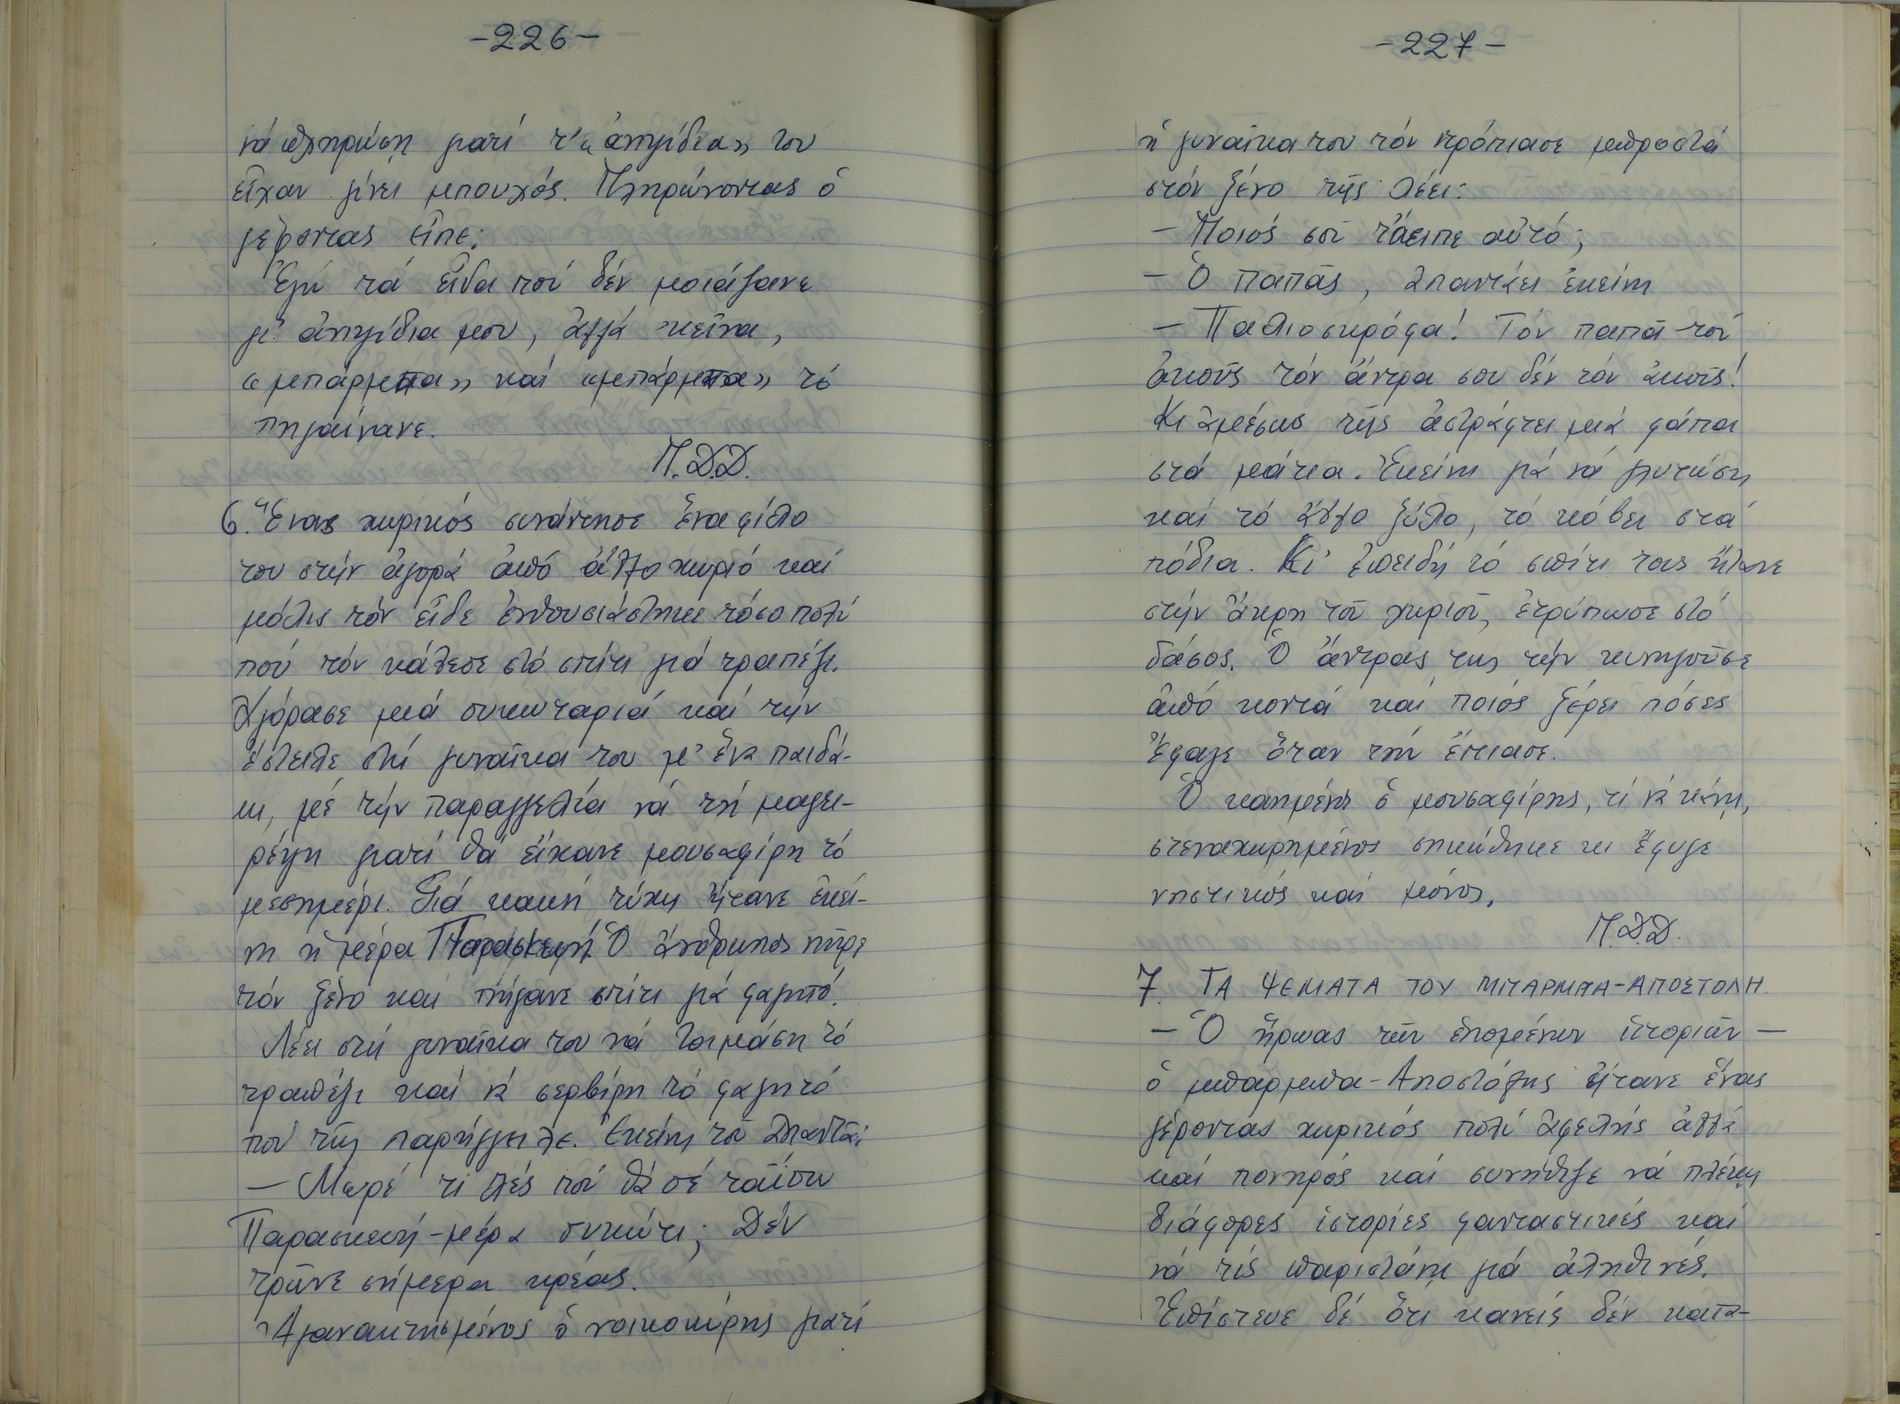 -226-
νά πληρώση γιατί τ' «ἀπηγίδεια» του
εἶχαν γίνει μπουχός. Πληρώνοντας ὁ
γέροντας εἶπε:
Ἐγώ τά εἶδα πού δέν μοιάζανε
γι' ἀπηγίδια μου, ἀλλά κεῖνα,
«μπάρμπα» καί «μπάρμπα» τό
πηγαίνανε.
Π.Δ.Δ.
6. Ἕνας χωρικός συνάντησε ἕνα φίλο
του στήν ἀγορά ἀπό ἄλλο χωριό καί
μόλις τόν εἶδε ἐνθουσιάστηκε τόσο πολύ
πού τόν κάλεσε στό σπίτι γιά τραπέζι.
Ἀγόρασε μιά συκωταριά καί τήν
ἔστειλε στή γυναῖκα του μ' ἕνα παιδά-
κι, μέ τήν παραγγελία νά τή μαγει-
ρέψη γιατί θά εἴχανε μουσαφίρη τό
μεσημέρι. Γιά κακή τύχη ἤτανε ἐκεί-
νη ἡ μέρα Παρασκευή. Ὁ ἄνθρωπος πῆρε
τόν ξένο καί πήγανε σπίτι γιά φαγητό.
Λέει στή γυναῖκα του νά τοιμάση τό
τραπέζι καί νά σερβίρη τό φαγητό
πού τῆς παρήγγειλε. Ἐκείνη τοῦ ἀπαντᾶ:
— Μωρέ τί λές πού θά σέ ταΐσω
Παρασκευή-μέρα συκώτι; Δέν
τρῶνε σήμερα κρέας.
Ἀγανακτισμένος ὁ νοικοκύρης γιατί
-227-
ἡ γυναῖκα του τόν πρόσιασε μπροστά
στόν ξένο τῆς λέει:
— Ποιός σοῦ τἄειπε αὐτό;
— Ὁ παπᾶς, ἀπαντάει ἐκείνη
— Παλιοσκρόφα! Τόν παπᾶ τόν
ἀκοῦς τόν ἄντρα σου δέν τόν ἀκοῦς!
Κι ἀμέσως τῆς ἀστράφτει μιά φάπα
στά μάτια. Ἐκείνη γιά νά γλυτώση
καί τό ἄλλο ξύλο, τό κόβει στά
πόδια. Κι' ἐπειδή τό σπίτι τους ἤτανε
στήν ἄκρη τοῦ χωριοῦ, ἐτρύπωσε στό
δάσος. Ὁ ἄντρας της τήν κυνηγοῦσε
ἀπό κοντά καί ποιός ξέρει πόσες
ἔφαγε ὅταν τήν ἔπιασε.
Ὁ καημένος ὁ μουσαφίρης, τί νά κάνη,
στεναχωρημένος σηκώθηκε κι ἔφυγε
νηστικός καί μόνος.
Π.Δ.Δ.
7. ΤΑ ΨΕΜΑΤΑ ΤΟΥ ΜΠΑΡΜΠΑ-ΑΠΟΣΤΟΛΗ
— Ὁ ἥρωας τῶν ἑπομένων ἱστοριῶν —
ὁ μπάρμπα-Ἀποστόλης ἤτανε ἕνας
γέροντας χωρικός πολύ ἀφελής ἀλλά
καί πονηρός καί συνήθιζε νά πλέκη
διάφορες ἱστορίες φανταστικές καί
νά τίς παριστάνη γιά ἀληθινές.
Ἐπίστευε δέ ὅτι κανείς δέν κατα-